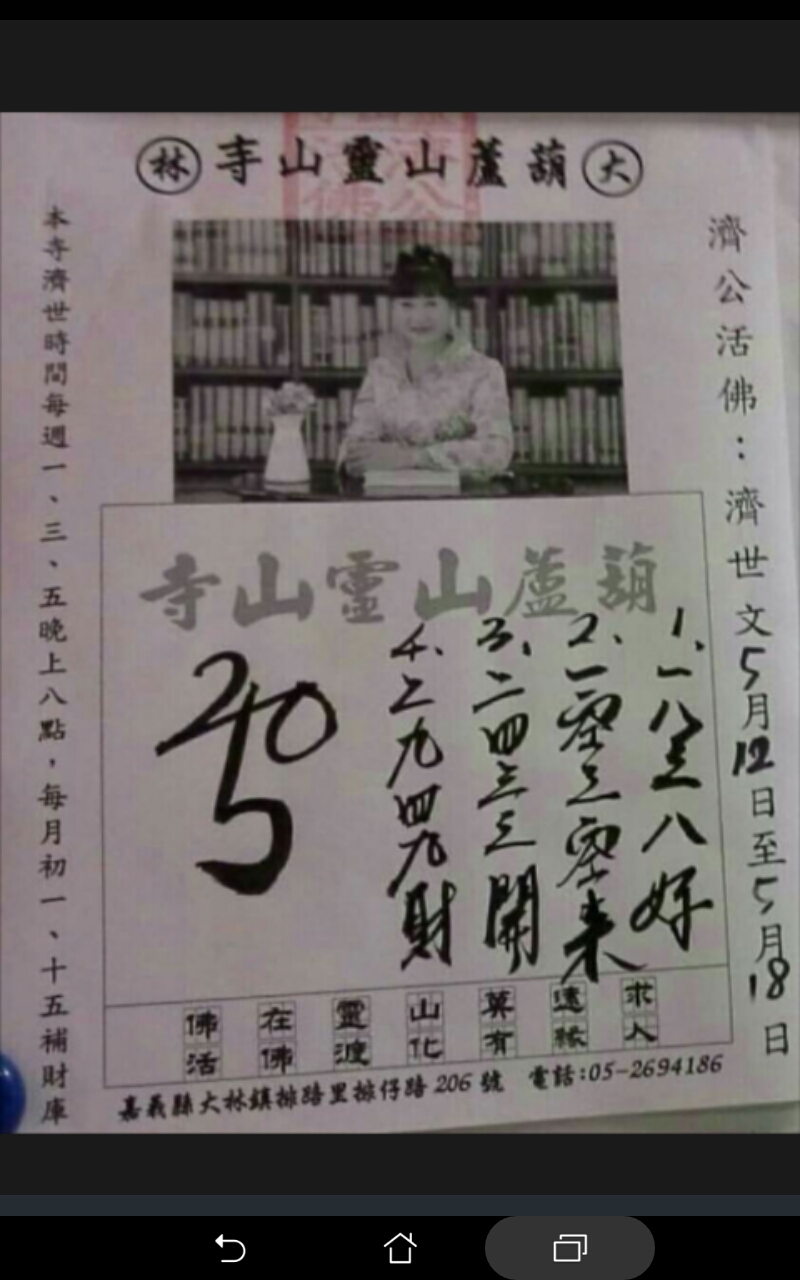 大葫蘆山靈山寺林
濟公活佛：濟世文5月12日至5月18日
葫蘆山靈山寺
1.一八三八好
2.一零三零来
3.二四三三開
4.二九四九財
佛在靈山莫遠求
活佛渡化有緣人
嘉義縣大林鎮排路里排仔路206號 電話:05-2694186
本寺濟世時間每週一、三、五晚上八點，每月初一、十五補財庫